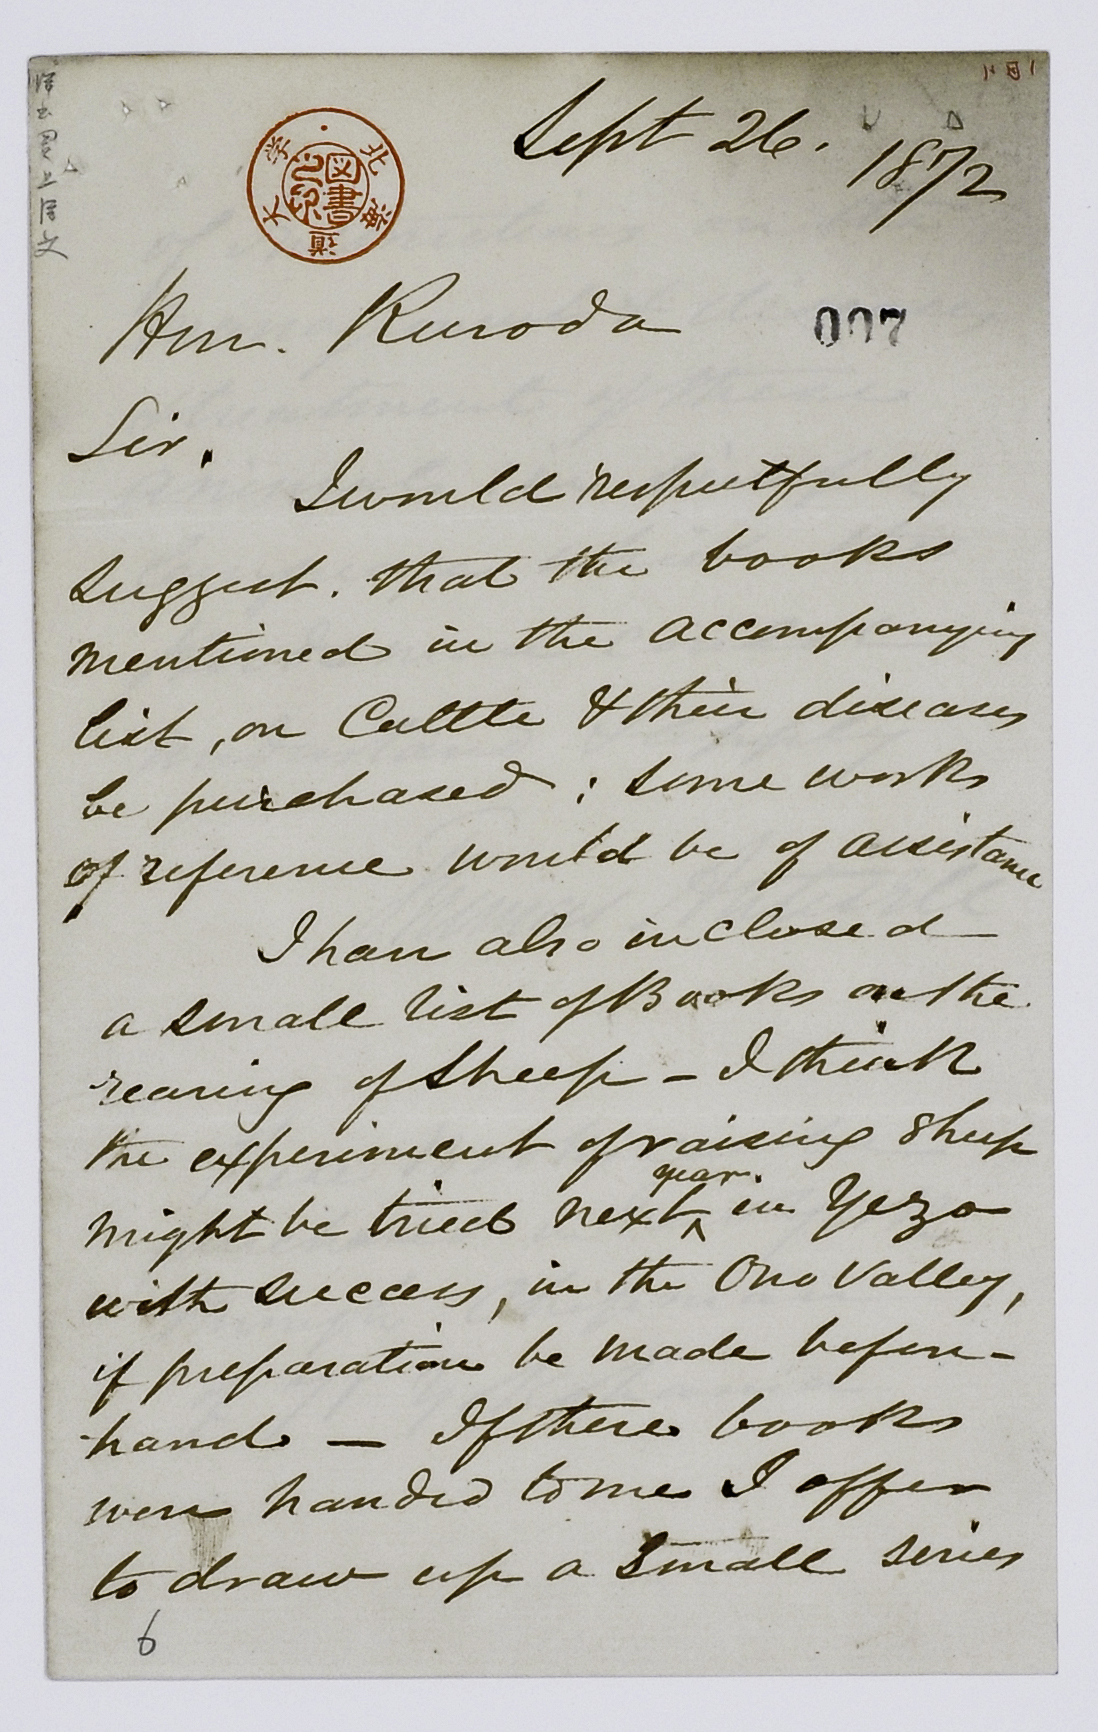 Sept 26. 1872
北海道大学
図書之印
007
Hon. Kuroda
Sir.
I would respectfully
suggest. that the books
mentioned in the accompanying
list, on Cattle & their diseases
be purchased; some works
of reference would be of assistance
I have also inclosed
a small list of Books on the
rearing of Sheep - I think
the experiment of raising Sheep
might be tried next year. in Yezo
with success, in the Ono Valley,
if preparation be made before-
hand — If these books
were handed to me I offer
to draw up a small series
6